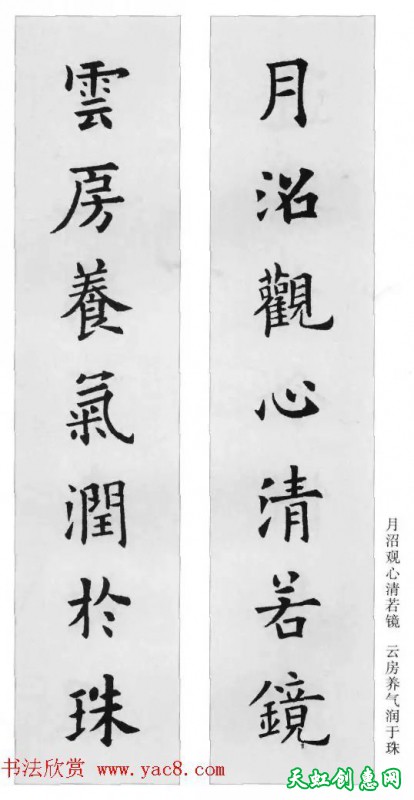 月沼觀心清若鏡
雲房養氣潤於珠
月沼观心清若镜 云房养气润于珠
书法欣赏 www.yac8.com
天虹创惠网